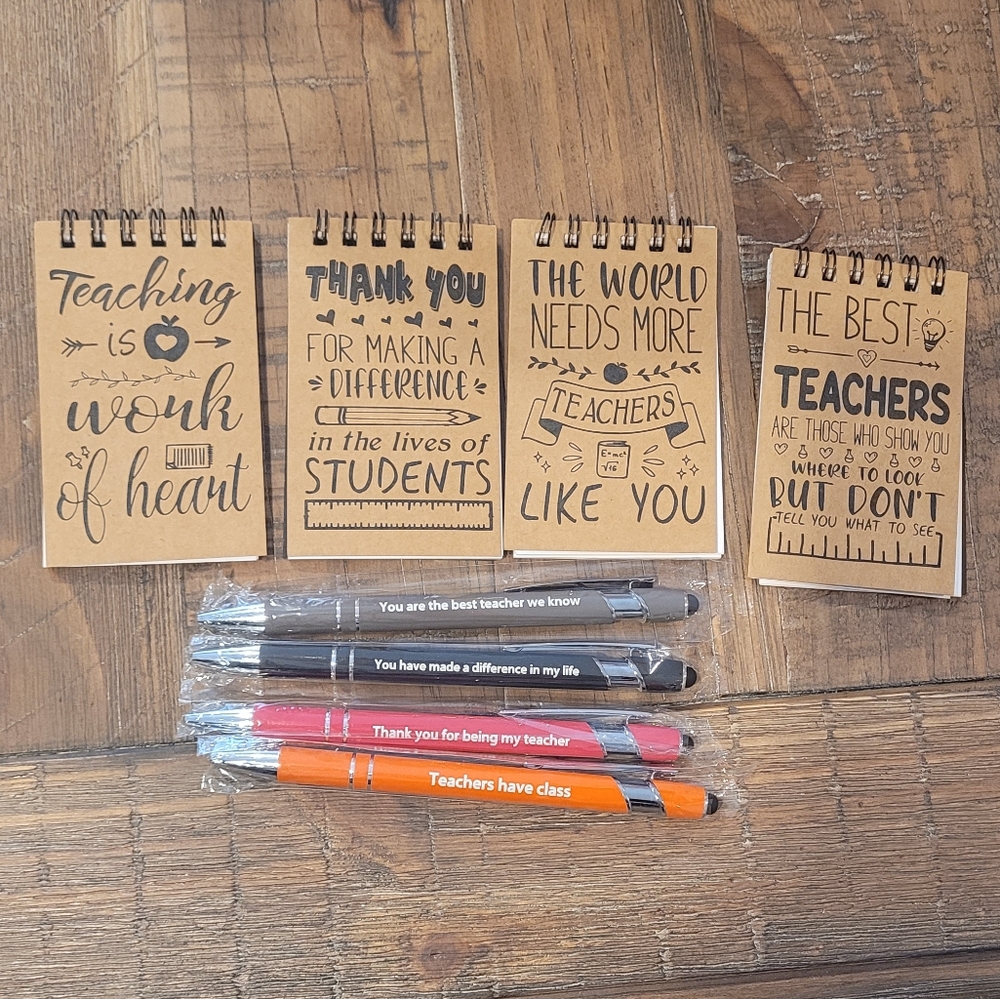 Teaching
is
work
of heart
THANK YOU
FOR MAKING A
DIFFERENCE
in the lives of
STUDENTS
THE WORLD
NEEDS MORE
TEACHERS
E=mc²
√16
LIKE YOU
THE BEST
TEACHERS
ARE THOSE WHO SHOW YOU
WHERE TO LOOK
BUT DON'T
TELL YOU WHAT TO SEE
You are the best teacher we know
You have made a difference in my life
Thank you for being my teacher
Teachers have class